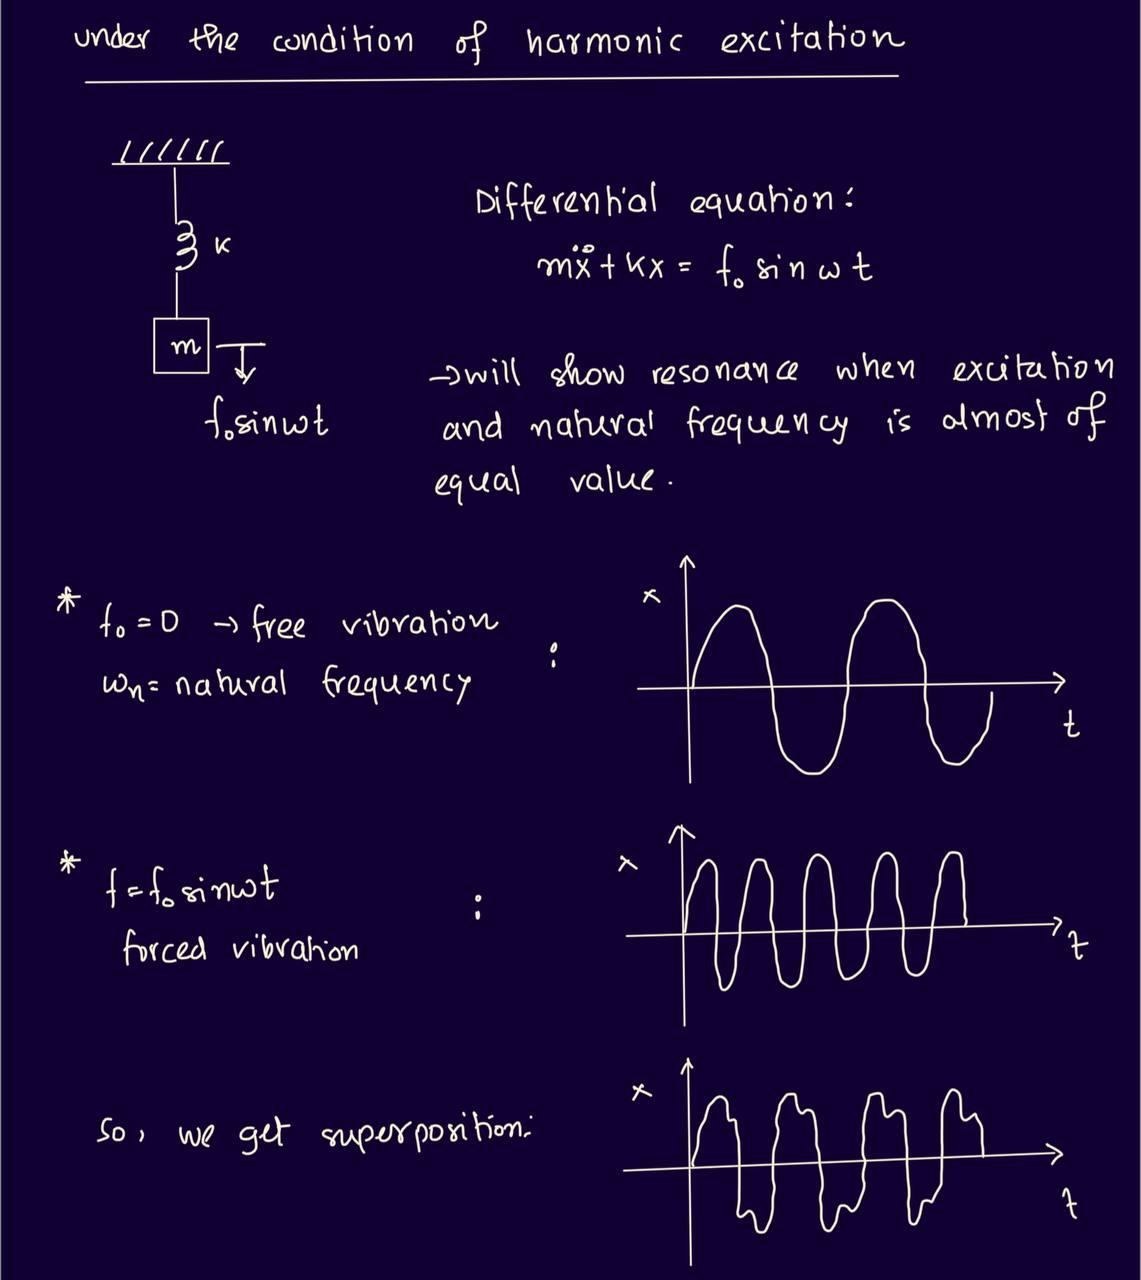 under the condition of harmonic excitation
K
m
f₀sinωt
Differential equation:
mẍ + Kx = f₀ sin ω t
→will show resonance when excitation
and natural frequency is almost of
equal value.
* f₀ = 0 → free vibration
ωₙ= natural frequency :
x
t
* f=f₀sinωt
forced vibration :
x
t
So, we get superposition:
x
t